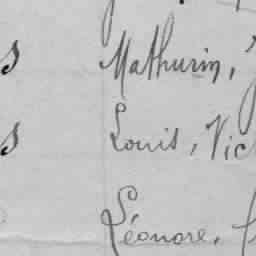 s Mathurin,
s Louis, Vic
Léonore,